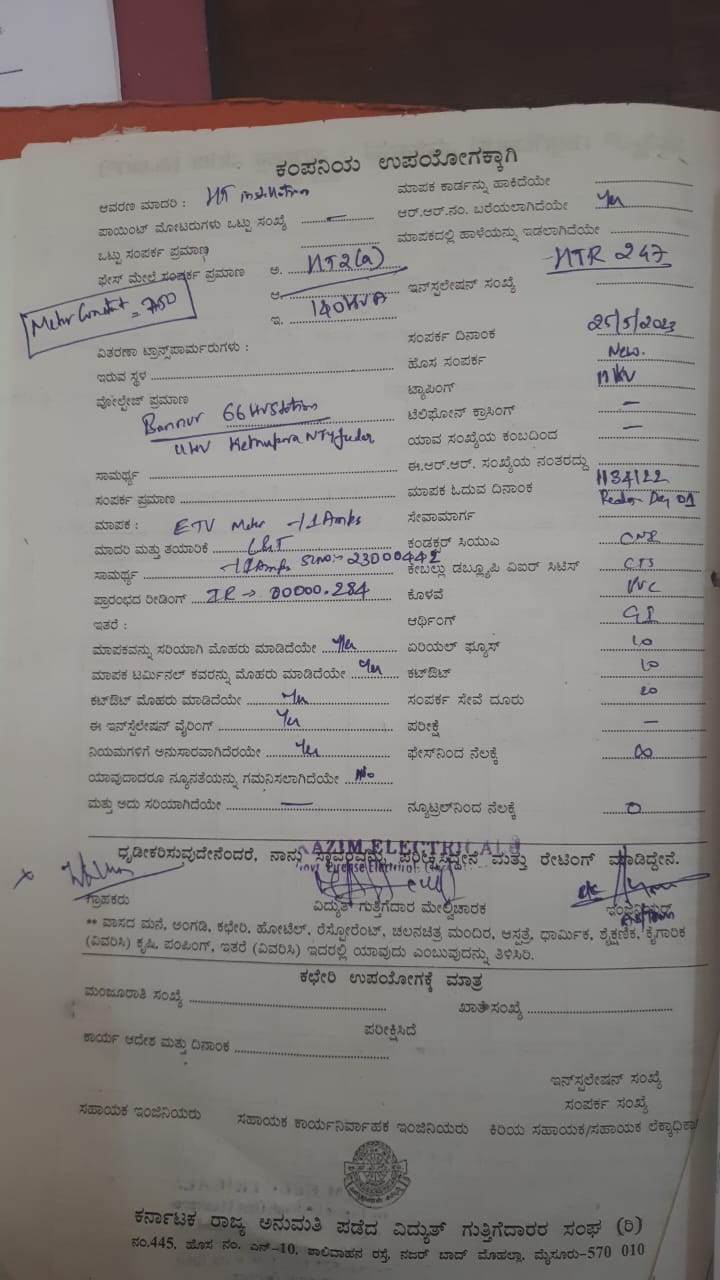 ಕಂಪನಿಯ ಉಪಯೋಗಕ್ಕಾಗಿ
ಆವರಣ ಮಾದರಿ : HT instllation
ಮಾಪಕ ಕಾರ್ಡನ್ನು ಹಾಕಿದೆಯೇ
ಪಾಯಿಂಟ್ ಮೋಟರುಗಳು ಒಟ್ಟು ಸಂಖ್ಯೆ —
ಆರ್.ಆರ್.ನಂ. ಬರೆಯಲಾಗಿದೆಯೇ Yes
ಒಟ್ಟು ಸಂಪರ್ಕ ಪ್ರಮಾಣ
ಮಾಪಕದಲ್ಲಿ ಹಾಳೆಯನ್ನು ಇಡಲಾಗಿದೆಯೇ
ಫೇಸ್ ಮೇಲೆ ಸಂಪರ್ಕ ಪ್ರಮಾಣ ಅ. HT2(a)
HTR 247
ಆ.
ಇನ್‌ಸ್ಪಲೇಷನ್ ಸಂಖ್ಯೆ
Meter Constant =
ಇ. 140KVA
ಸಂಪರ್ಕ ದಿನಾಂಕ 25/5/2023
ವಿತರಣಾ ಟ್ರಾನ್ಸ್‌ಪಾರ್ಮರುಗಳು :
ಹೊಸ ಸಂಪರ್ಕ New.
ಇರುವ ಸ್ಥಳ
ಟ್ಯಾಪಿಂಗ್ 11KV
ವೋಲ್ಟೇಜ್ ಪ್ರಮಾಣ
ಟೆಲಿಫೋನ್ ಕ್ರಾಸಿಂಗ್ —
Bannur 66KV Station
11KV NJY feeder
ಯಾವ ಸಂಖ್ಯೆಯ ಕಂಬದಿಂದ —
ಸಾಮರ್ಥ್ಯ
ಈ.ಆರ್.ಆರ್. ಸಂಖ್ಯೆಯ ನಂತರದ್ದು 1134122
ಸಂಪರ್ಕ ಪ್ರಮಾಣ
ಮಾಪಕ ಓದುವ ದಿನಾಂಕ Day 01
ಮಾಪಕ : ETV Meter -/1 Amps
ಸೇವಾಮಾರ್ಗ
ಮಾದರಿ ಮತ್ತು ತಯಾರಿಕೆ L&T
ಕಂಡಕ್ಟರ್ ಸಿಯುವಿ
ಸಾಮರ್ಥ್ಯ -/1Amps Slno:- 23000442
ಕೇಬಲ್ಲು ಡಬ್ಲ್ಯೂಪಿ ವಿಐರ್ ಸಿಟಿಸ್ CTS
ಪ್ರಾರಂಭದ ರೀಡಿಂಗ್ IR → 00000.284
ಕೊಳವೆ PVC
ಇತರೆ :
ಆರ್ಥಿಂಗ್ GI
ಮಾಪಕವನ್ನು ಸರಿಯಾಗಿ ಮೊಹರು ಮಾಡಿದೆಯೇ Yes
ಏರಿಯಲ್ ಫ್ಯೂಸ್ 10
ಮಾಪಕ ಟರ್ಮಿನಲ್ ಕವರನ್ನು ಮೊಹರು ಮಾಡಿದೆಯೇ Yes
ಕಟ್‌ಔಟ್ 10
ಕಟ್‌ಔಟ್ ಮೊಹರು ಮಾಡಿದೆಯೇ Yes
ಸಂಪರ್ಕ ಸೇವೆ ದೂರು 20
ಈ ಇನ್‌ಸ್ಟೆಲೇಷನ್ ವೈರಿಂಗ್ Yes
ಪರೀಕ್ಷೆ —
ನಿಯಮಗಳಿಗೆ ಅನುಸಾರವಾಗಿದೆರಯೇ Yes
ಫೇಸ್‌ನಿಂದ ನೆಲಕ್ಕೆ ∞
ಯಾವುದಾದರೂ ನ್ಯೂನತೆಯನ್ನು ಗಮನಿಸಲಾಗಿದೆಯೇ No
ಮತ್ತು ಅದು ಸರಿಯಾಗಿದೆಯೇ —
ನ್ಯೂಟ್ರಲ್‌ನಿಂದ ನೆಲಕ್ಕೆ 0
AZIM ELECTRICALS
ಧೃಡೀಕರಿಸುವುದೇನೆಂದರೆ, ನಾನು ಸ್ಥಾವರವನ್ನು ಪರೀಕ್ಷಿಸಿದ್ದೇನೆ ಮತ್ತು ರೇಟಿಂಗ್ ಮಾಡಿದ್ದೇನೆ.
ಗ್ರಾಹಕರು
ವಿದ್ಯುತ್ ಗುತ್ತಿಗೆದಾರ ಮೇಲ್ವಿಚಾರಕ
ಇಂಜಿನಿಯರ್
** ವಾಸದ ಮನೆ, ಅಂಗಡಿ, ಕಛೇರಿ, ಹೋಟೆಲ್, ರೆಸ್ಟೋರೆಂಟ್, ಚಲನಚಿತ್ರ ಮಂದಿರ, ಆಸ್ಪತ್ರೆ, ಧಾರ್ಮಿಕ, ಶೈಕ್ಷಣಿಕ, ಕೈಗಾರಿಕ
(ವಿವರಿಸಿ) ಕೃಷಿ, ಪಂಪಿಂಗ್, ಇತರೆ (ವಿವರಿಸಿ) ಇದರಲ್ಲಿ ಯಾವುದು ಎಂಬುವುದನ್ನು ತಿಳಿಸಿರಿ.
ಕಛೇರಿ ಉಪಯೋಗಕ್ಕೆ ಮಾತ್ರ
ಮಂಜೂರಾತಿ ಸಂಖ್ಯೆ
ಖಾತೆ ಸಂಖ್ಯೆ
ಪರೀಕ್ಷಿಸಿದೆ
ಕಾರ್ಯ ಆದೇಶ ಮತ್ತು ದಿನಾಂಕ
ಇನ್‌ಸ್ಪಲೇಷನ್ ಸಂಖ್ಯೆ
ಸಂಪರ್ಕ ಸಂಖ್ಯೆ
ಸಹಾಯಕ ಇಂಜಿನಿಯರು
ಸಹಾಯಕ ಕಾರ್ಯನಿರ್ವಾಹಕ ಇಂಜಿನಿಯರು
ಕಿರಿಯ ಸಹಾಯಕ/ಸಹಾಯಕ ಲೆಕ್ಕಾಧಿಕಾ
ಕರ್ನಾಟಕ ರಾಜ್ಯ ಅನುಮತಿ ಪಡೆದ ವಿದ್ಯುತ್ ಗುತ್ತಿಗೆದಾರರ ಸಂಘ (ರಿ)
ನಂ.445, ಹೊಸ ನಂ. ಎನ್-10, ಶಾಲಿವಾಹನ ರಸ್ತೆ, ನಜರ್ ಬಾದ್ ಮೊಹಲ್ಲಾ, ಮೈಸೂರು-570 010